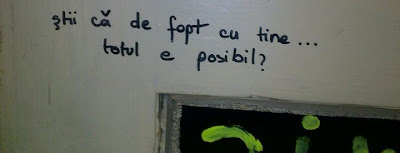 știi că de fapt cu tine...
totul e posibil?